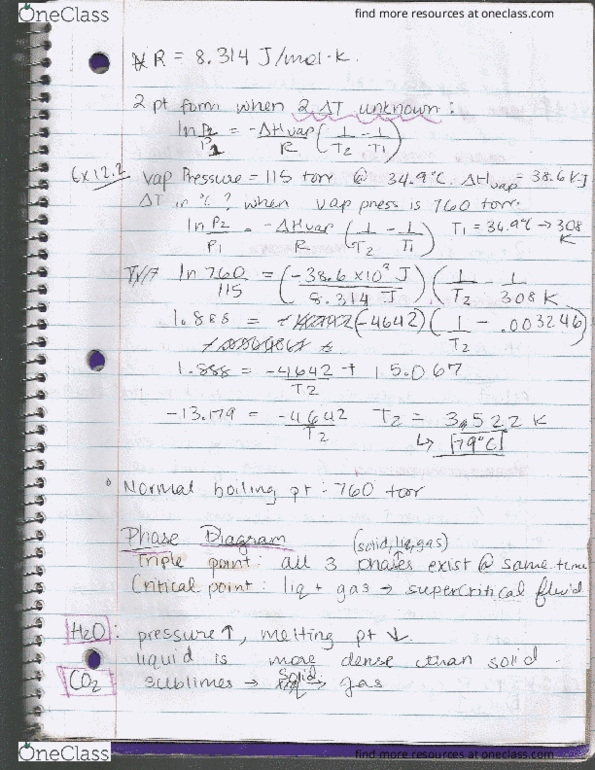 OneClass
find more resources at oneclass.com
R = 8.314 J/mol·K.
2 pt form when 2 ΔT unknown:
ln P2/P1 = -ΔHvap/R (1/T2 - 1/T1)
Ex 12.2 Vap Pressure = 115 torr @ 34.9°C. ΔHvap = 38.6 KJ
ΔT in °C? when vap press is 760 torr.
ln P2/P1 = -ΔHvap/R (1/T2 - 1/T1) T1 = 34.9°C → 308 K
ln 760/115 = (-38.6 x10³ J / 8.314 J) (1/T2 - 1/308 K)
1.888 = (-4642) (1/T2 - .003246)
1.888 = -4642/T2 + 15.067
-13.179 = -4642/T2 T2 = 3,522 K
↳ [79°C]
° Normal boiling pt: 760 torr
Phase Diagram
(solid, liq, gas)
Triple point: all 3 phases exist @ same time
Critical point: liq + gas → supercritical fluid
H2O: pressure ↑, melting pt ↓.
liquid is more dense than solid.
CO2 sublimes → solid → gas
OneClass
find more resources at oneclass.com